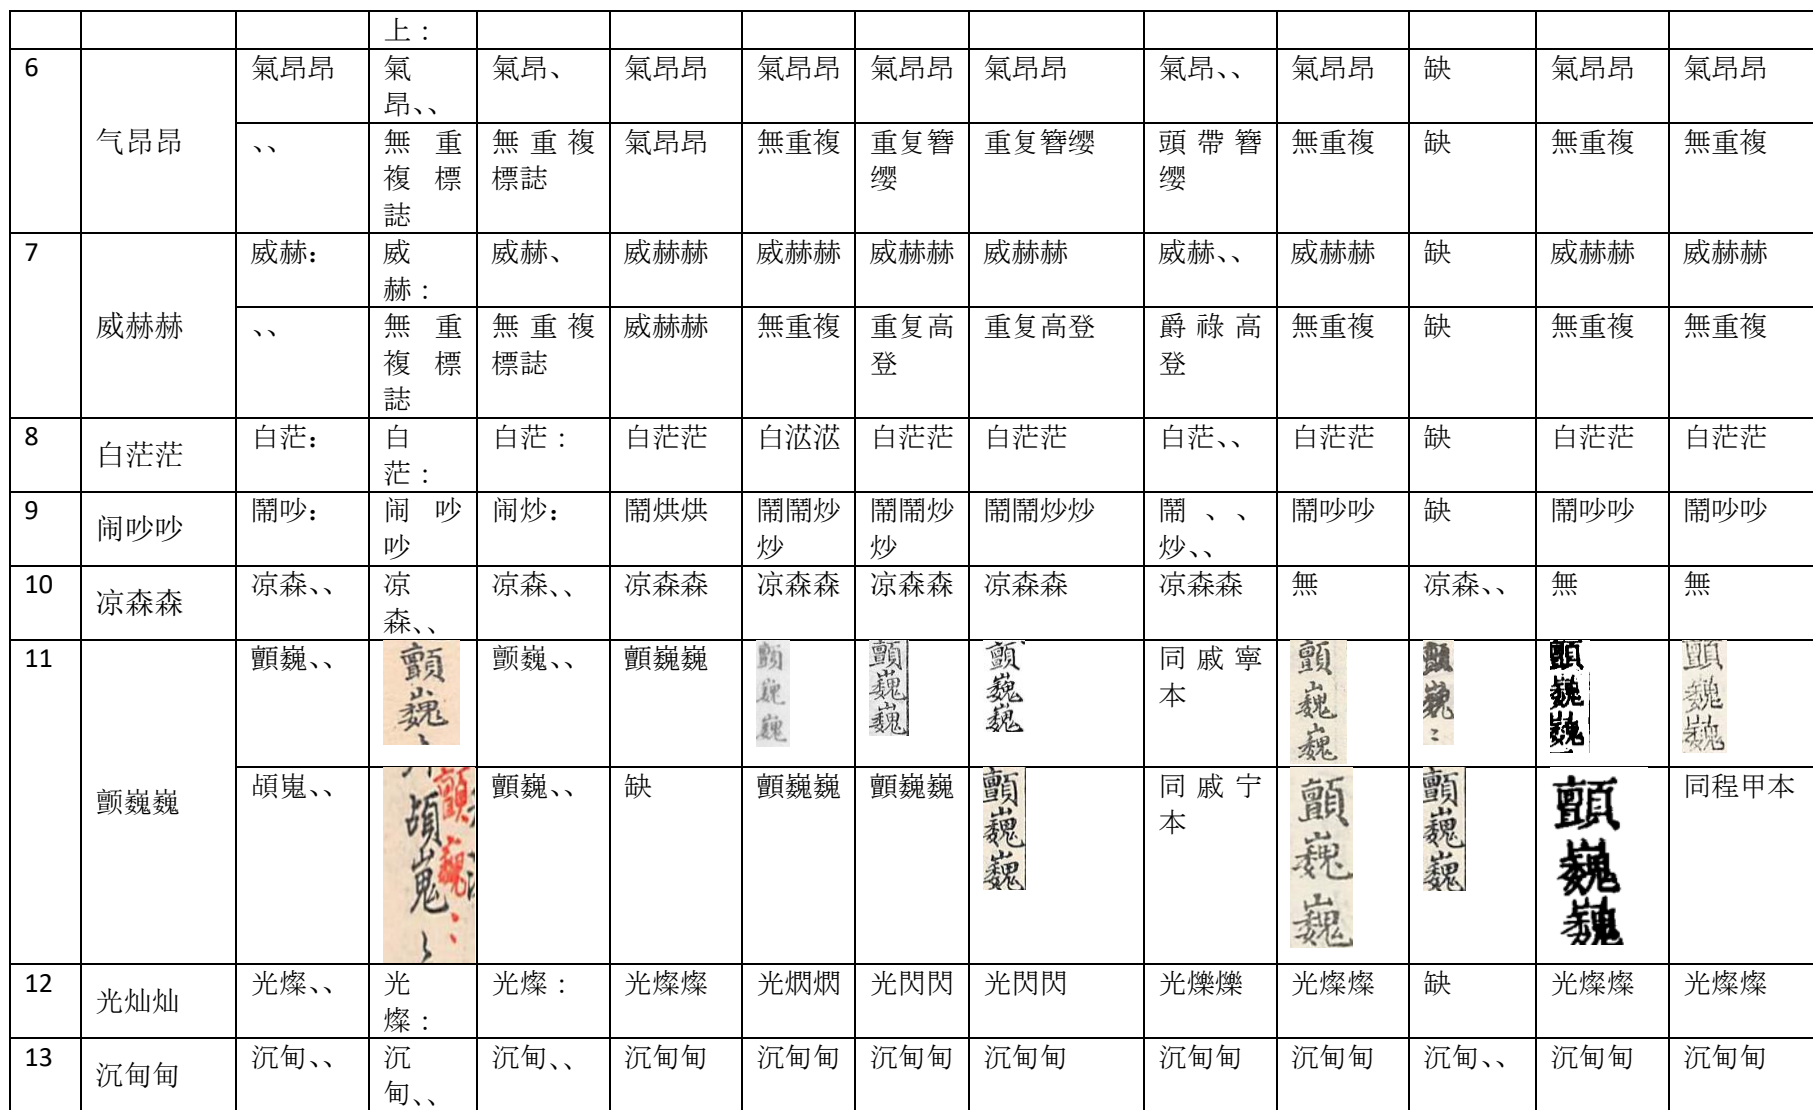 上：
6 气昂昂 氣昂昂 氣昂、、 氣昂、 氣昂昂 氣昂昂 氣昂昂 氣昂昂 氣昂、、 氣昂昂 缺 氣昂昂 氣昂昂
、、 無重複標誌 無重複標誌 氣昂昂 無重複 重复簪缨 重复簪缨 頭帶簪缨 無重複 缺 無重複 無重複
7 威赫赫 威赫： 威赫： 威赫、 威赫赫 威赫赫 威赫赫 威赫赫 威赫、、 威赫赫 缺 威赫赫 威赫赫
、、 無重複標誌 無重複標誌 威赫赫 無重複 重复高登 重复高登 爵祿高登 無重複 缺 無重複 無重複
8 白茫茫 白茫： 白茫： 白茫： 白茫茫 白𣴎𣴎 白茫茫 白茫茫 白茫、、 白茫茫 缺 白茫茫 白茫茫
9 闹吵吵 鬧吵： 闹吵吵 闹炒： 鬧烘烘 鬧鬧炒炒 鬧鬧炒炒 鬧鬧炒炒 鬧、、炒、、 鬧吵吵 缺 鬧吵吵 鬧吵吵
10 凉森森 凉森、、 凉森、、 凉森、、 凉森森 凉森森 凉森森 凉森森 凉森森 無 凉森、、 無 無
11 颤巍巍 顫巍、、 顫巍、、 颤巍、、 顫巍巍 顫巍巍 顫巍巍 顫巍巍 同戚寧本 顫巍巍 顫巍、、 顫巍巍 顫巍巍
頕嵬、、 頕嵬、、 顫巍、、 顫巍、、 缺 顫巍巍 顫巍巍 顫巍巍 同戚宁本 顫巍巍 顫巍巍 顫巍巍 同程甲本
12 光灿灿 光燦、、 光燦： 光燦： 光燦燦 光焛焛 光閃閃 光閃閃 光爍爍 光燦燦 缺 光燦燦 光燦燦
13 沉甸甸 沉甸、、 沉甸、、 沉甸、、 沉甸甸 沉甸甸 沉甸甸 沉甸甸 沉甸甸 沉甸甸 沉甸、、 沉甸甸 沉甸甸